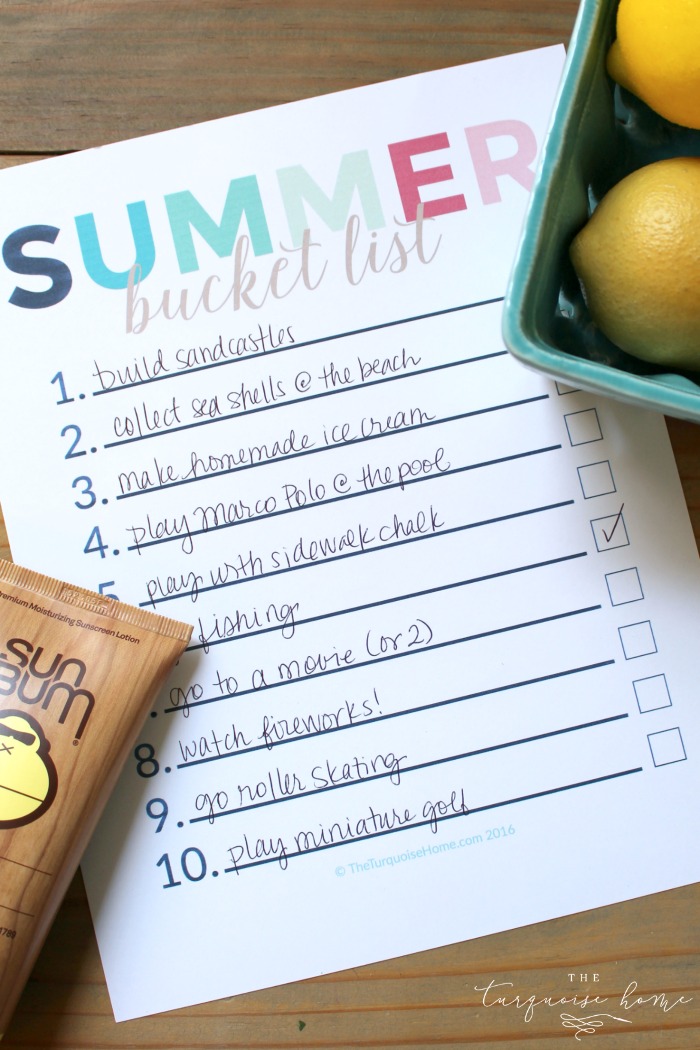 SUMMER
bucket list
1. build sandcastles
2. collect sea shells @ the beach
3. make homemade ice cream
4. play Marco Polo @ the pool
play with sidewalk chalk
fishing
go to a movie (or 2)
8. watch fireworks!
9. go roller skating
10. play miniature golf
© TheTurquoiseHome.com 2016
Premium Moisturizing Sunscreen Lotion
SUN
BUM®
THE
turquoise home